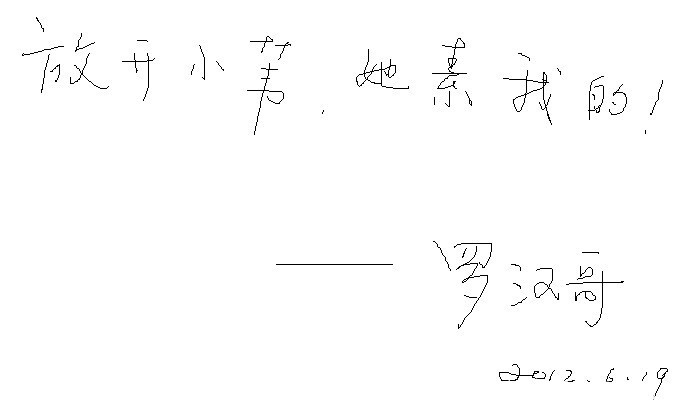 放开小苇,她素我的!
——罗汉哥
2012.6.19